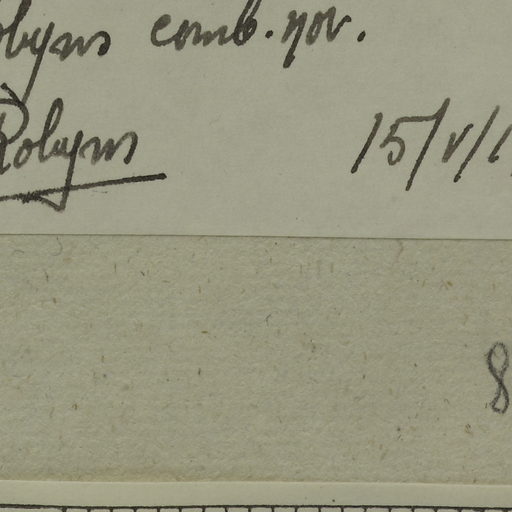 obyns comb. nov.
Robyns 15/V/1
8